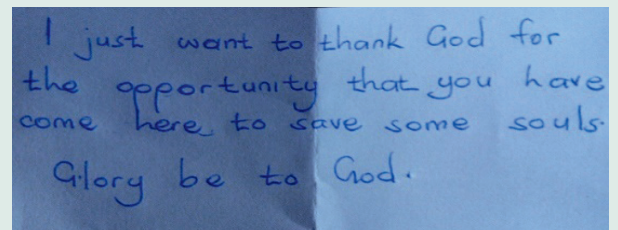 I just want to thank God for
the opportunity that you have
come here to save some souls.
Glory be to God.